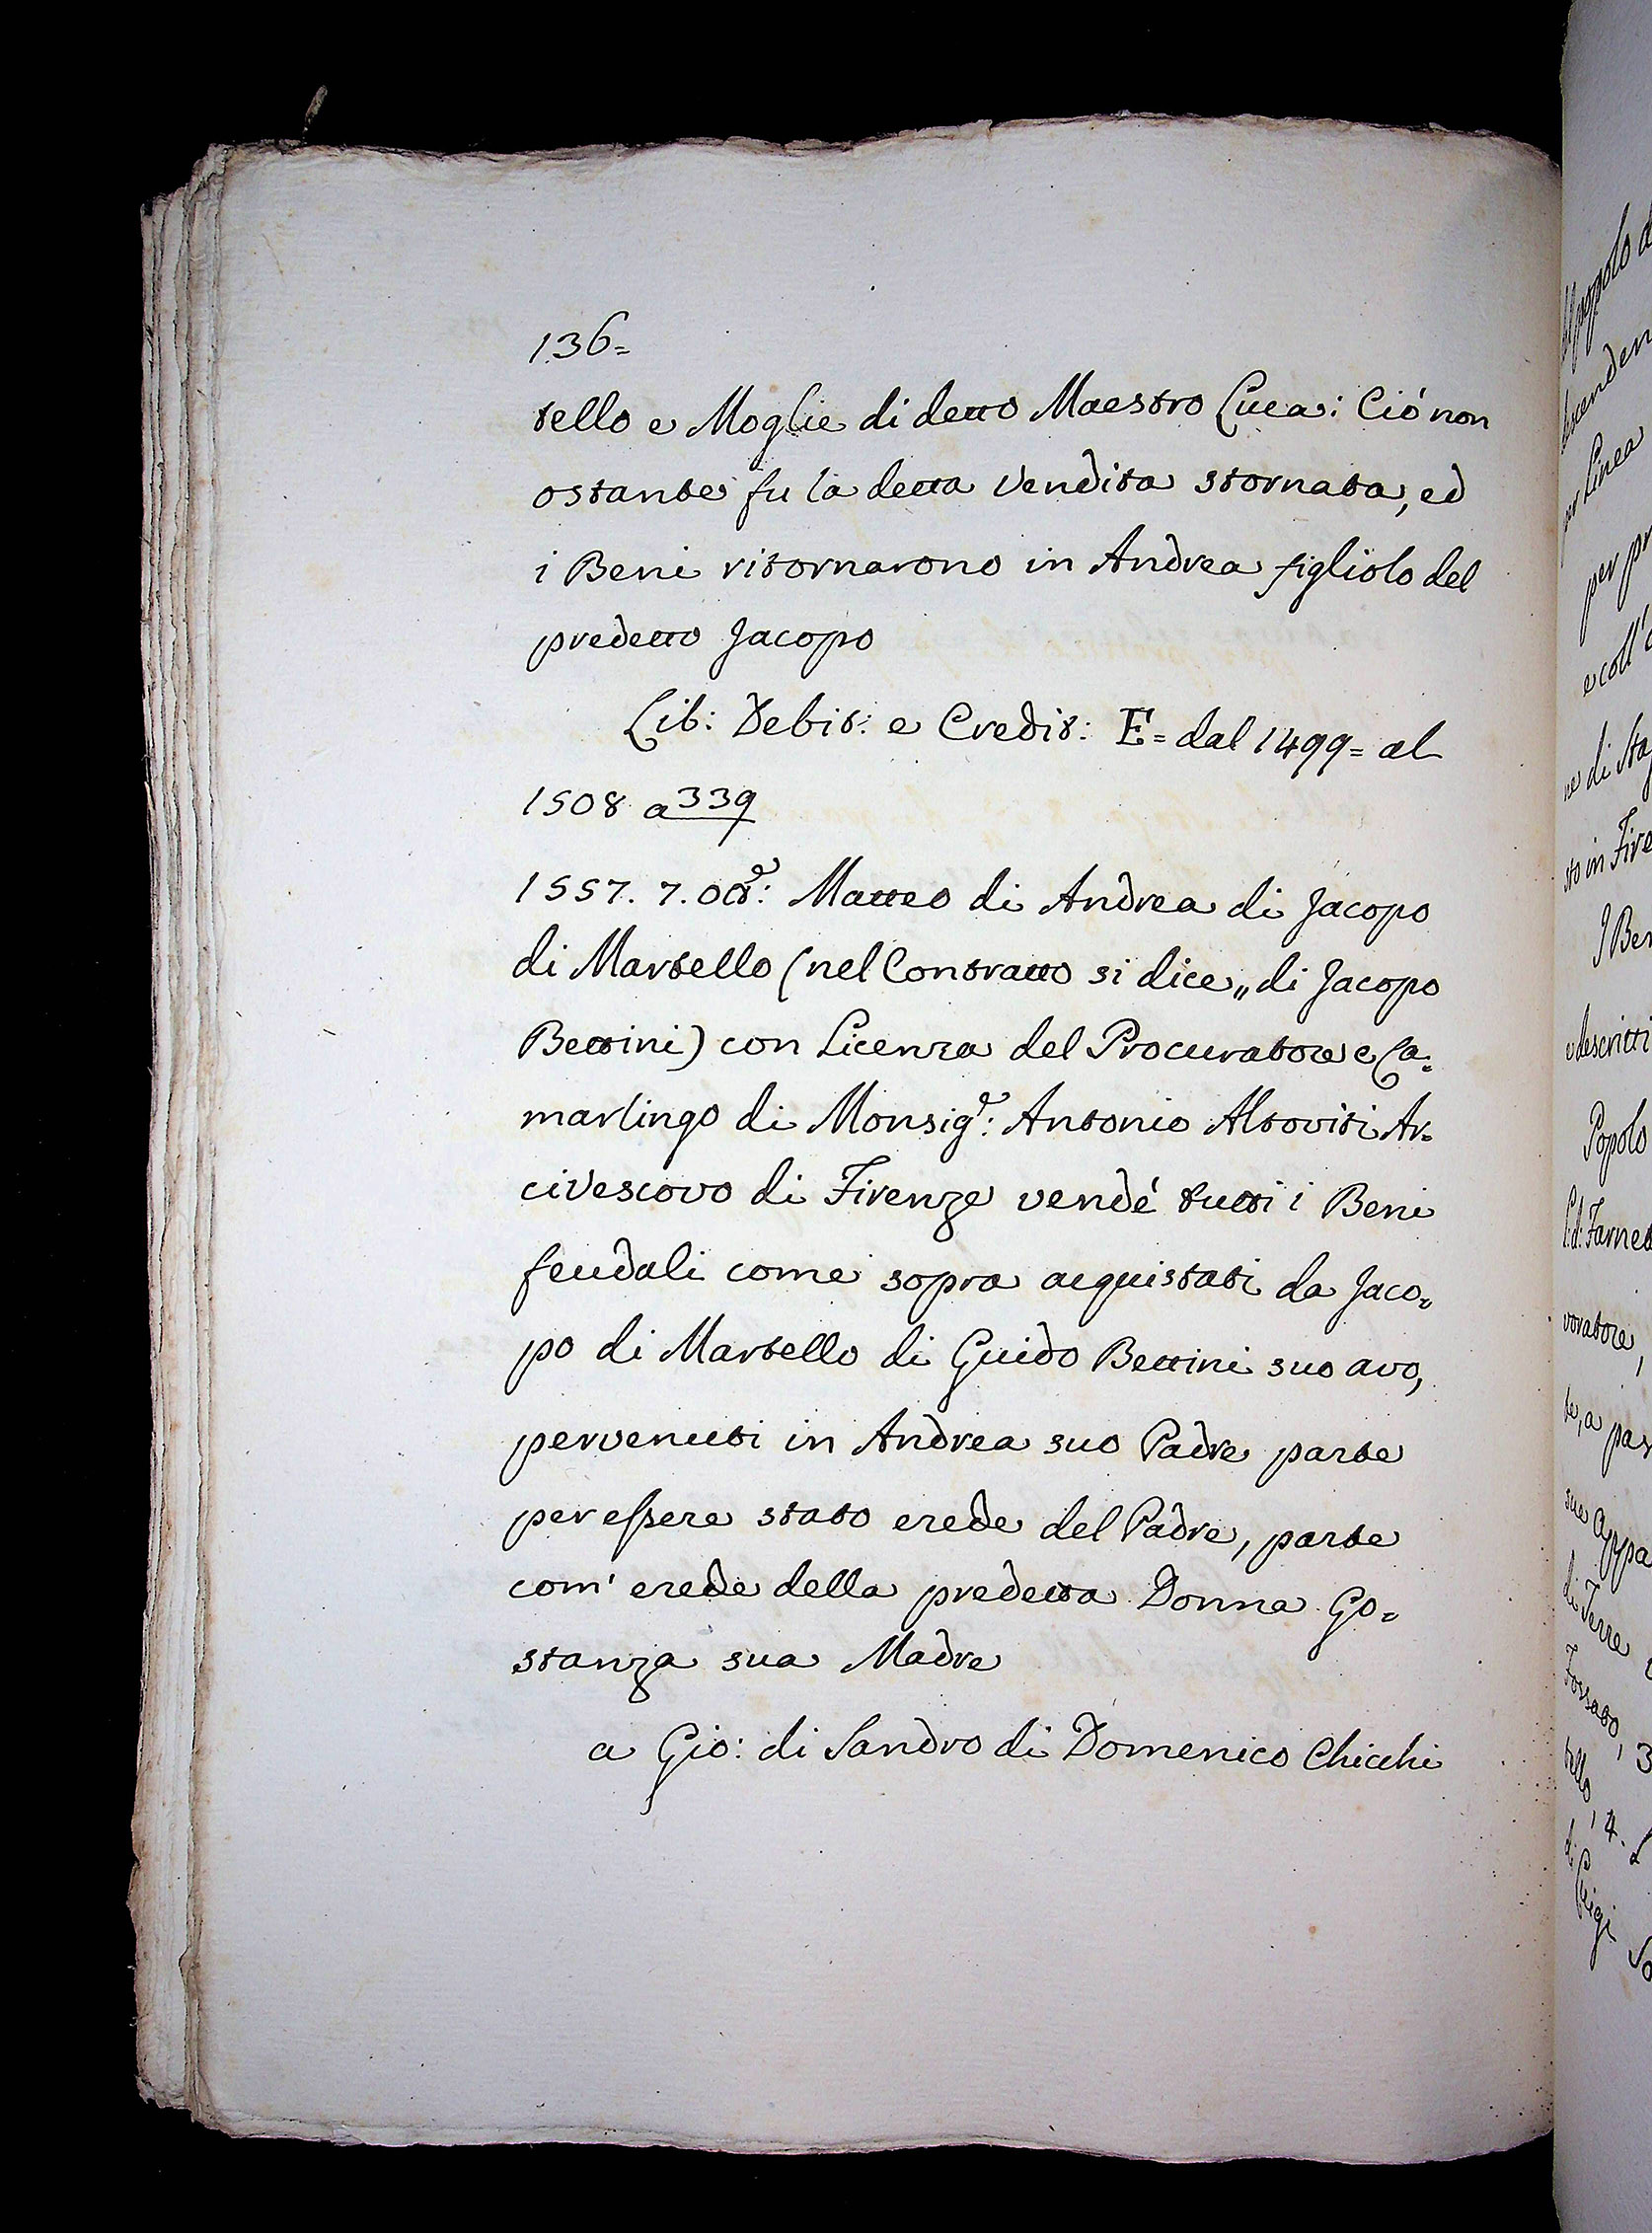 136=
tello e Moglie di detto Maestro Luca: Ció non
ostante fu la detta Vendita stornata, ed
i Beni ritornarono in Andrea figliolo del
predetto Jacopo
Lib: Debit: e Credit: E= dal 1499= al
1508 a 339
1557. 7. Ott.e: Matteo di Andrea di Jacopo
di Martello (nel Contratto si dice „ di Jacopo
Bettini) con Licenza del Procuratore e Ca=
marlingo di Monsig.e: Antonio Altoviti Ar=
civescovo di Firenze vendé tutti i Beni
feudali come sopra acquistati da Jaco=
po di Martello di Guido Bettini suo avo,
pervenuti in Andrea suo Padre parte
per essere stato erede del Padre, parte
com' erede della predetta Donna Go=
stanza sua Madre
a Gio: di Sandro di Domenico Chicchi
per Linea
per pr
e coll'
ne di Sta
sto in Fire
I Ben
descritti
Popolo
voratore,
te, a par
sue Appa
di Terre
Fossato, 3
tello, 4.
di Luigi